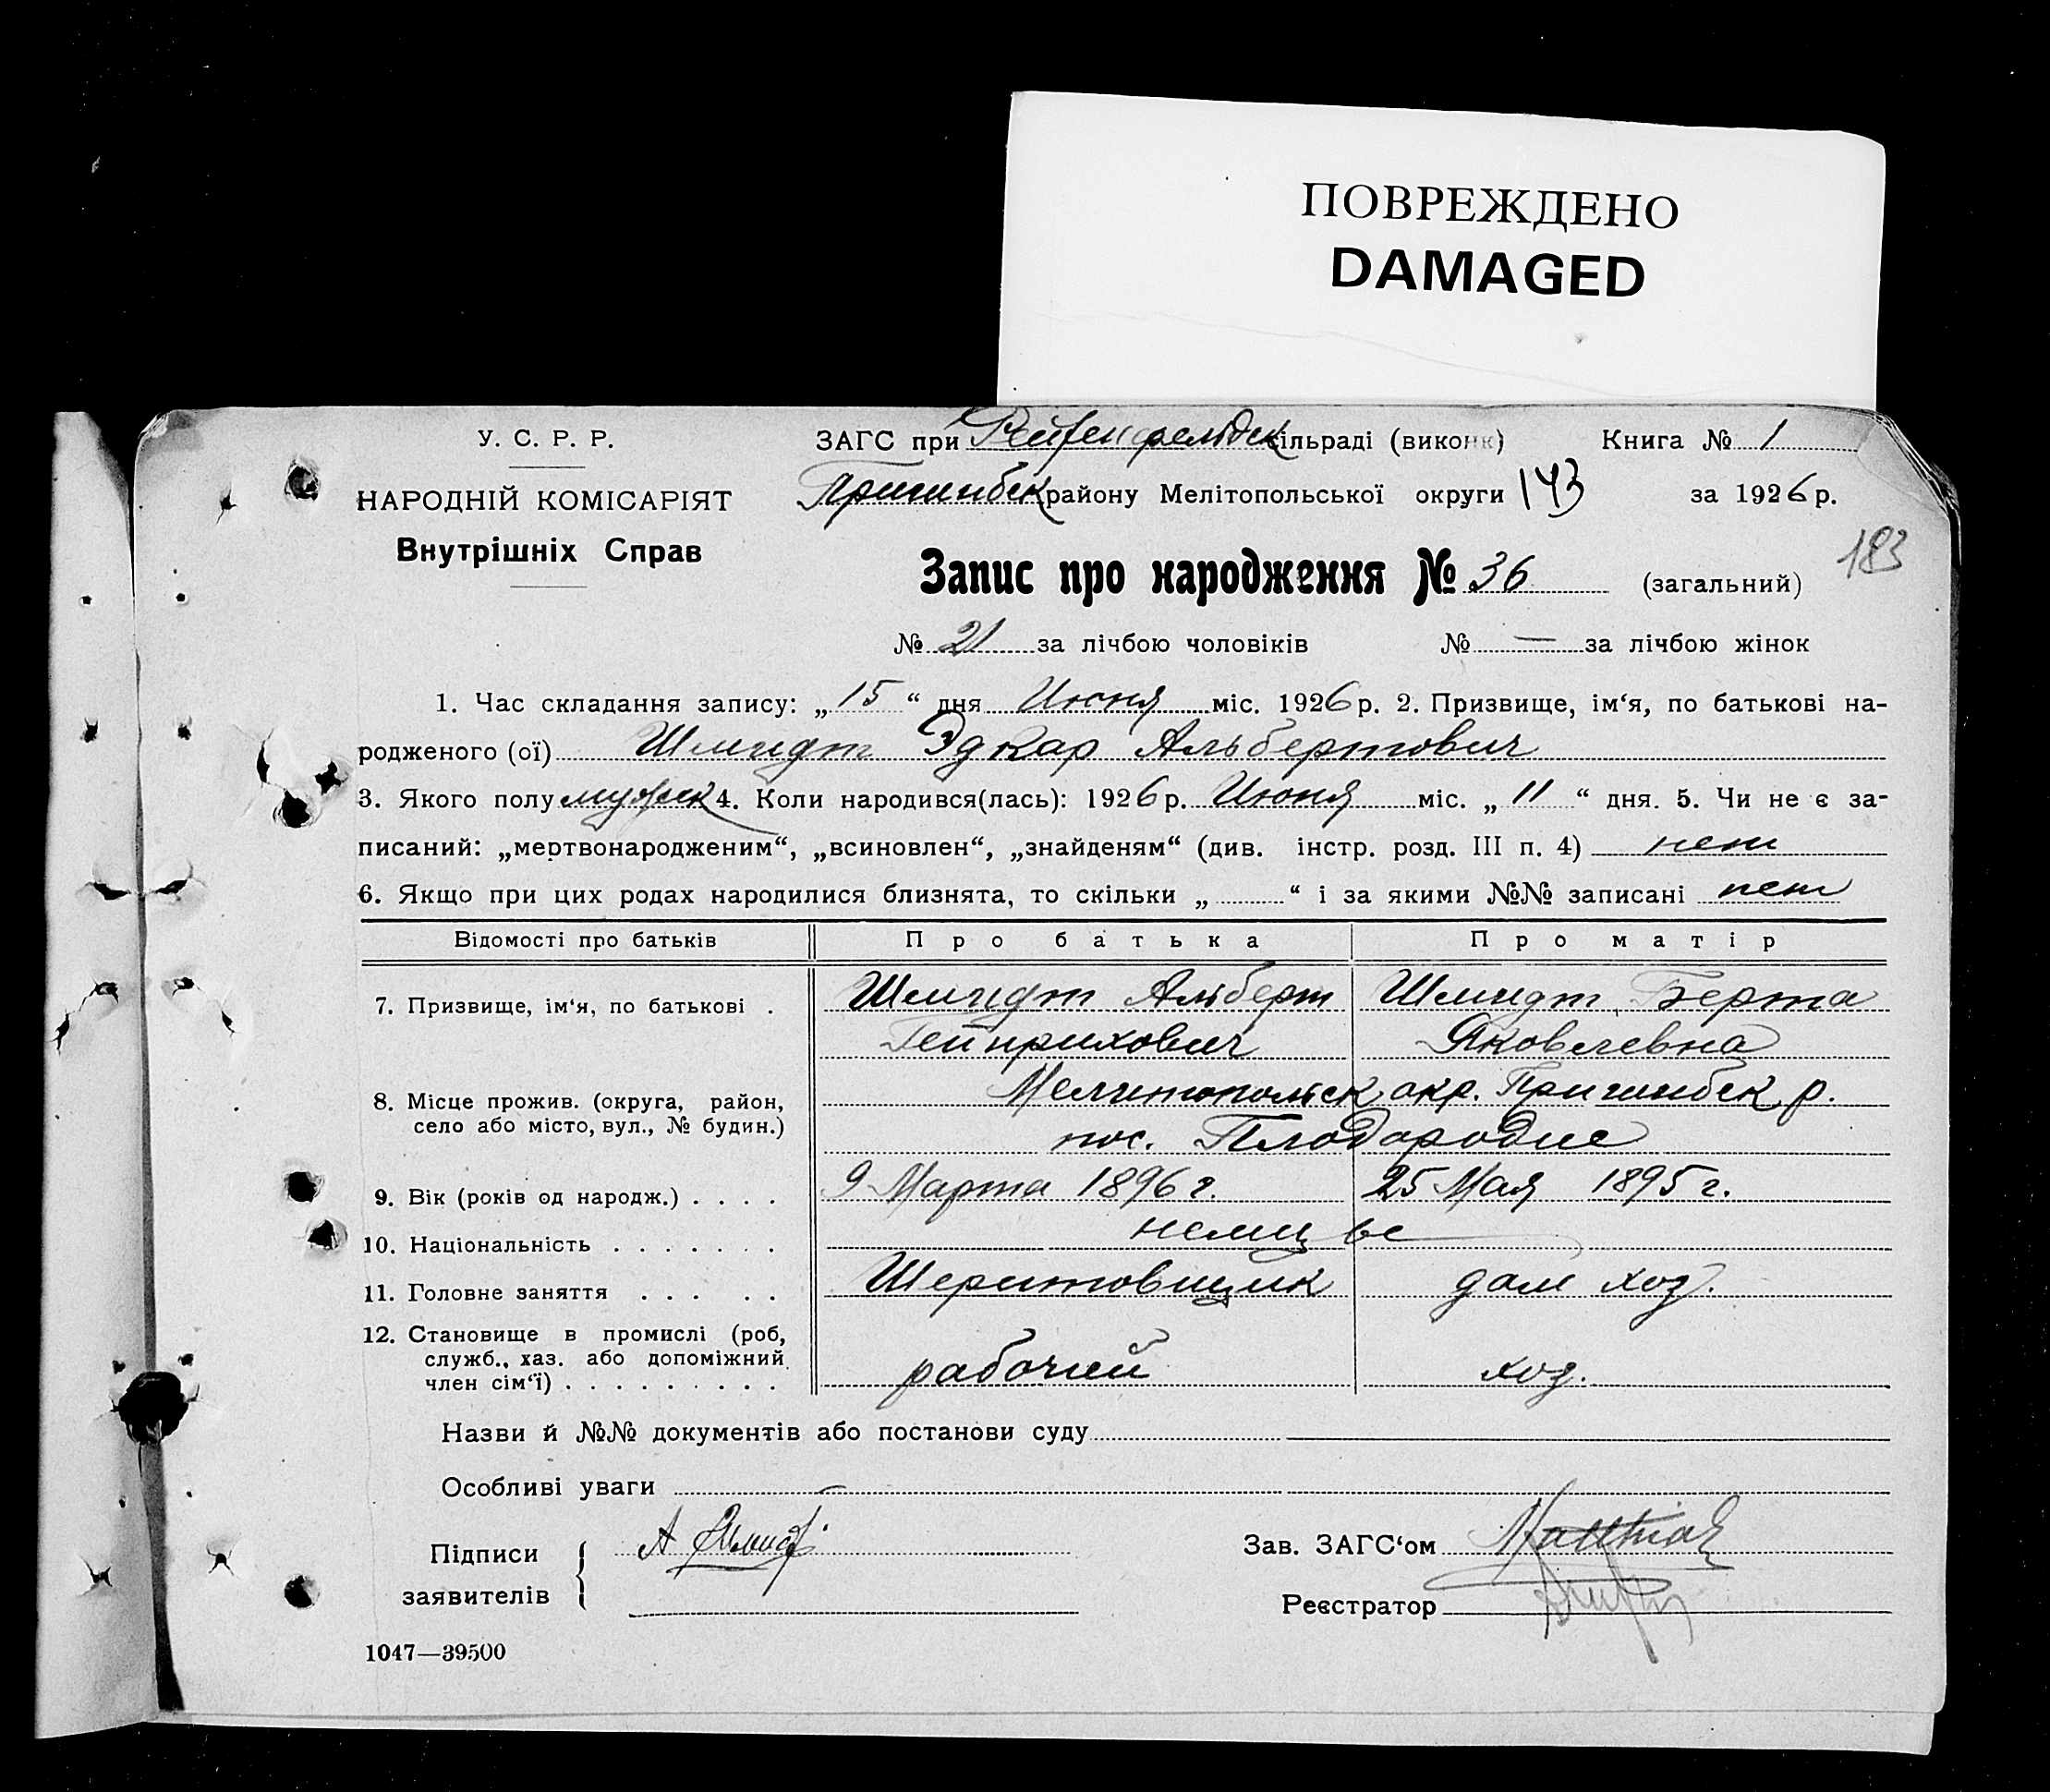 ПОВРЕЖДЕНО
DAMAGED
У. С. Р. Р.
НАРОДНІЙ КОМІСАРІЯТ
Внутрішніх Справ
ЗАГС при Рейхенфельдск сільраді (виконк) Книга № 1
Пришибск району Мелітопольської округи 143 за 1926 р.
183
Запис про народження № 36 (загальний)
№ 21 за лічбою чоловіків № — за лічбою жінок
1. Час складання запису: „15“ дня Июня міс. 1926 р. 2. Призвище, ім‘я, по батькові на-
родженого (ої) Шмидт Эдкар Альбертович
3. Якого полу мужск 4. Коли народився(лась): 1926 р. Июня міс. „11“ дня. 5. Чи не є за-
писаний: „мертвонародженим“, „всиновлен“, „знайденям“ (див. інстр. розд. III п. 4) нет
6. Якщо при цих родах народилися близнята, то скільки „ “ і за якими №№ записані нет
Відомості про батьків Про батька Про матір
7. Призвище, ім‘я, по батькові . Шмидт Альберт Гейнрихович Шмидт Берта Яковлевна
8. Місце прожив. (округа, район, село або місто, вул., № будин.) Мелитопольск окр. Пришибск р.
пос. Плодородие
9. Вік (років од народж.) . . . . 9 Марта 1896 г. 25 Мая 1895 г.
10. Національність . . . . . . . немцы
11. Головне заняття . . . . . Шеритовщик дом хоз.
12. Становище в промислі (роб, служб., хаз. або допоміжний член сім‘ї) . . . . . . . . . рабочий хоз.
Назви й №№ документів або постанови суду
Особливі уваги
Підписи заявителів А Шмидт
Зав. ЗАГС‘ом
Реєстратор
1047—39500